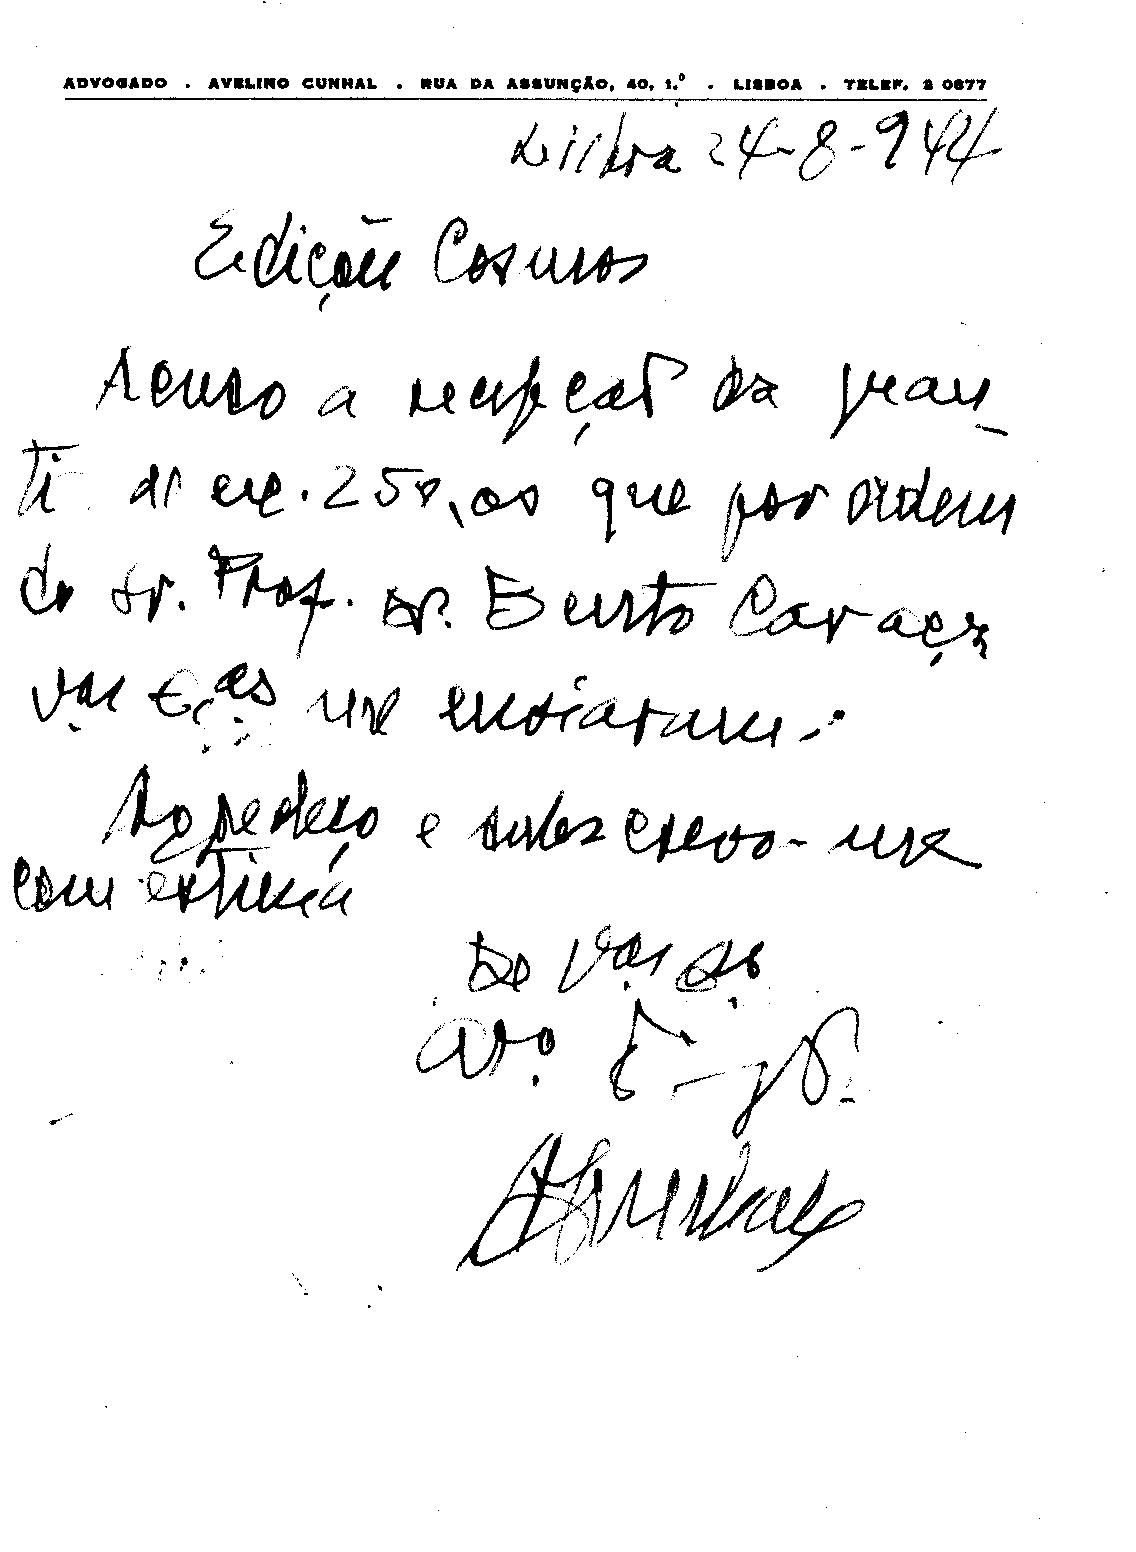 ADVOGADO . AVELINO CUNHAL . RUA DA ASSUNÇÃO, 40, 1.º . LISBOA . TELEF. 2 0677
Lisboa 24-8-944
Edições Cosmos
Acuso a recepção da quan-
tia de esc. 250,00 que por ordem
do sr. Prof. Dr. Bento Caraça
vas Ex.as me enviaram.
Agradeço e subscrevo-me
com estima
De Vas
At.o
ACunhal